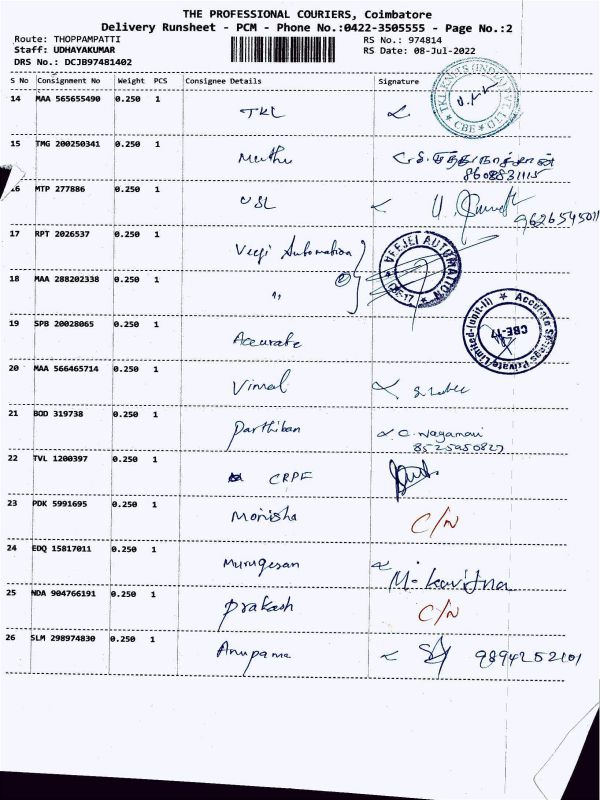 THE PROFESSIONAL COURIERS, Coimbatore
Delivery Runsheet - PCM - Phone No.:0422-3505555 - Page No.:2
Route: THOPPAMPATTI RS No.: 974814
Staff: UDHAYAKUMAR RS Date: 08-Jul-2022
DRS No.: DCJB97481402
S No Consignment No Weight PCS Consignee Details Signature
14 MAA 565655490 0.250 1 TKL
CBE
15 TMG 200250341 0.250 1 Muthu
8608831115
16 MTP 277886 0.250 1 USL
9626545011
17 RPT 2026537 0.250 1 Veeji Automation
VEEJEI AUTOMATION
CBE-17
18 MAA 288202338 0.250 1 "
19 SPB 20028065 0.250 1 Accurate
Accurate Springs Private Limited-(unit-I)
CBE-17
20 MAA 566465714 0.250 1 Vimal
21 BOD 319738 0.250 1 Parthiban C. Nagamani
8525950827
22 TVL 1200397 0.250 1 CRPF
23 PDK 5991695 0.250 1 Monisha C/N
24 EDQ 15817011 0.250 1 Murugesan M. Kavitha
25 NDA 904766191 0.250 1 Prakash C/N
26 SLM 298974830 0.250 1 Anupama 9894252101